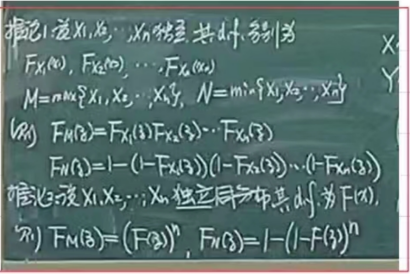 推论1:设X1,X2,…,Xn独立,其d.f.分别为
FX1(x),FX2(x),…,FXn(x)
M=max{X1,X2,…,Xn}, N=min{X1,X2,…,Xn}
则 FM(z)=FX1(z)FX2(z)…FXn(z)
FN(z)=1-(1-FX1(z))(1-FX2(z))…(1-FXn(z))
推论2:设X1,X2,…,Xn独立同分布,其d.f.为F(x),
则 FM(z)=(F(z))^n, FN(z)=1-(1-F(z))^n
X
Y